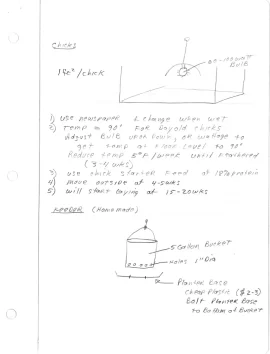 Chicks
15¢/chick
80-100 WATT
BULB
1) USE NEWSPAPER & CHANGE WHEN WET
2) TEMP @ 90° FOR DAY OLD CHICKS
Adjust Bulb up or down, or wattage to
get temp at floor level to 90°
Reduce temp 5°F/week until feathered
(3-4 wks)
3) USE chick STARTER FEED at 18% protein
4) move outside at 4-5 wks
5) will START laying at 15-20 wks
FEEDER (Homemade)
5 Gallon Bucket
Holes 1" Dia
Planter Base
cheap plastic ($2-3)
Bolt Planter Base
to Bottom of Bucket